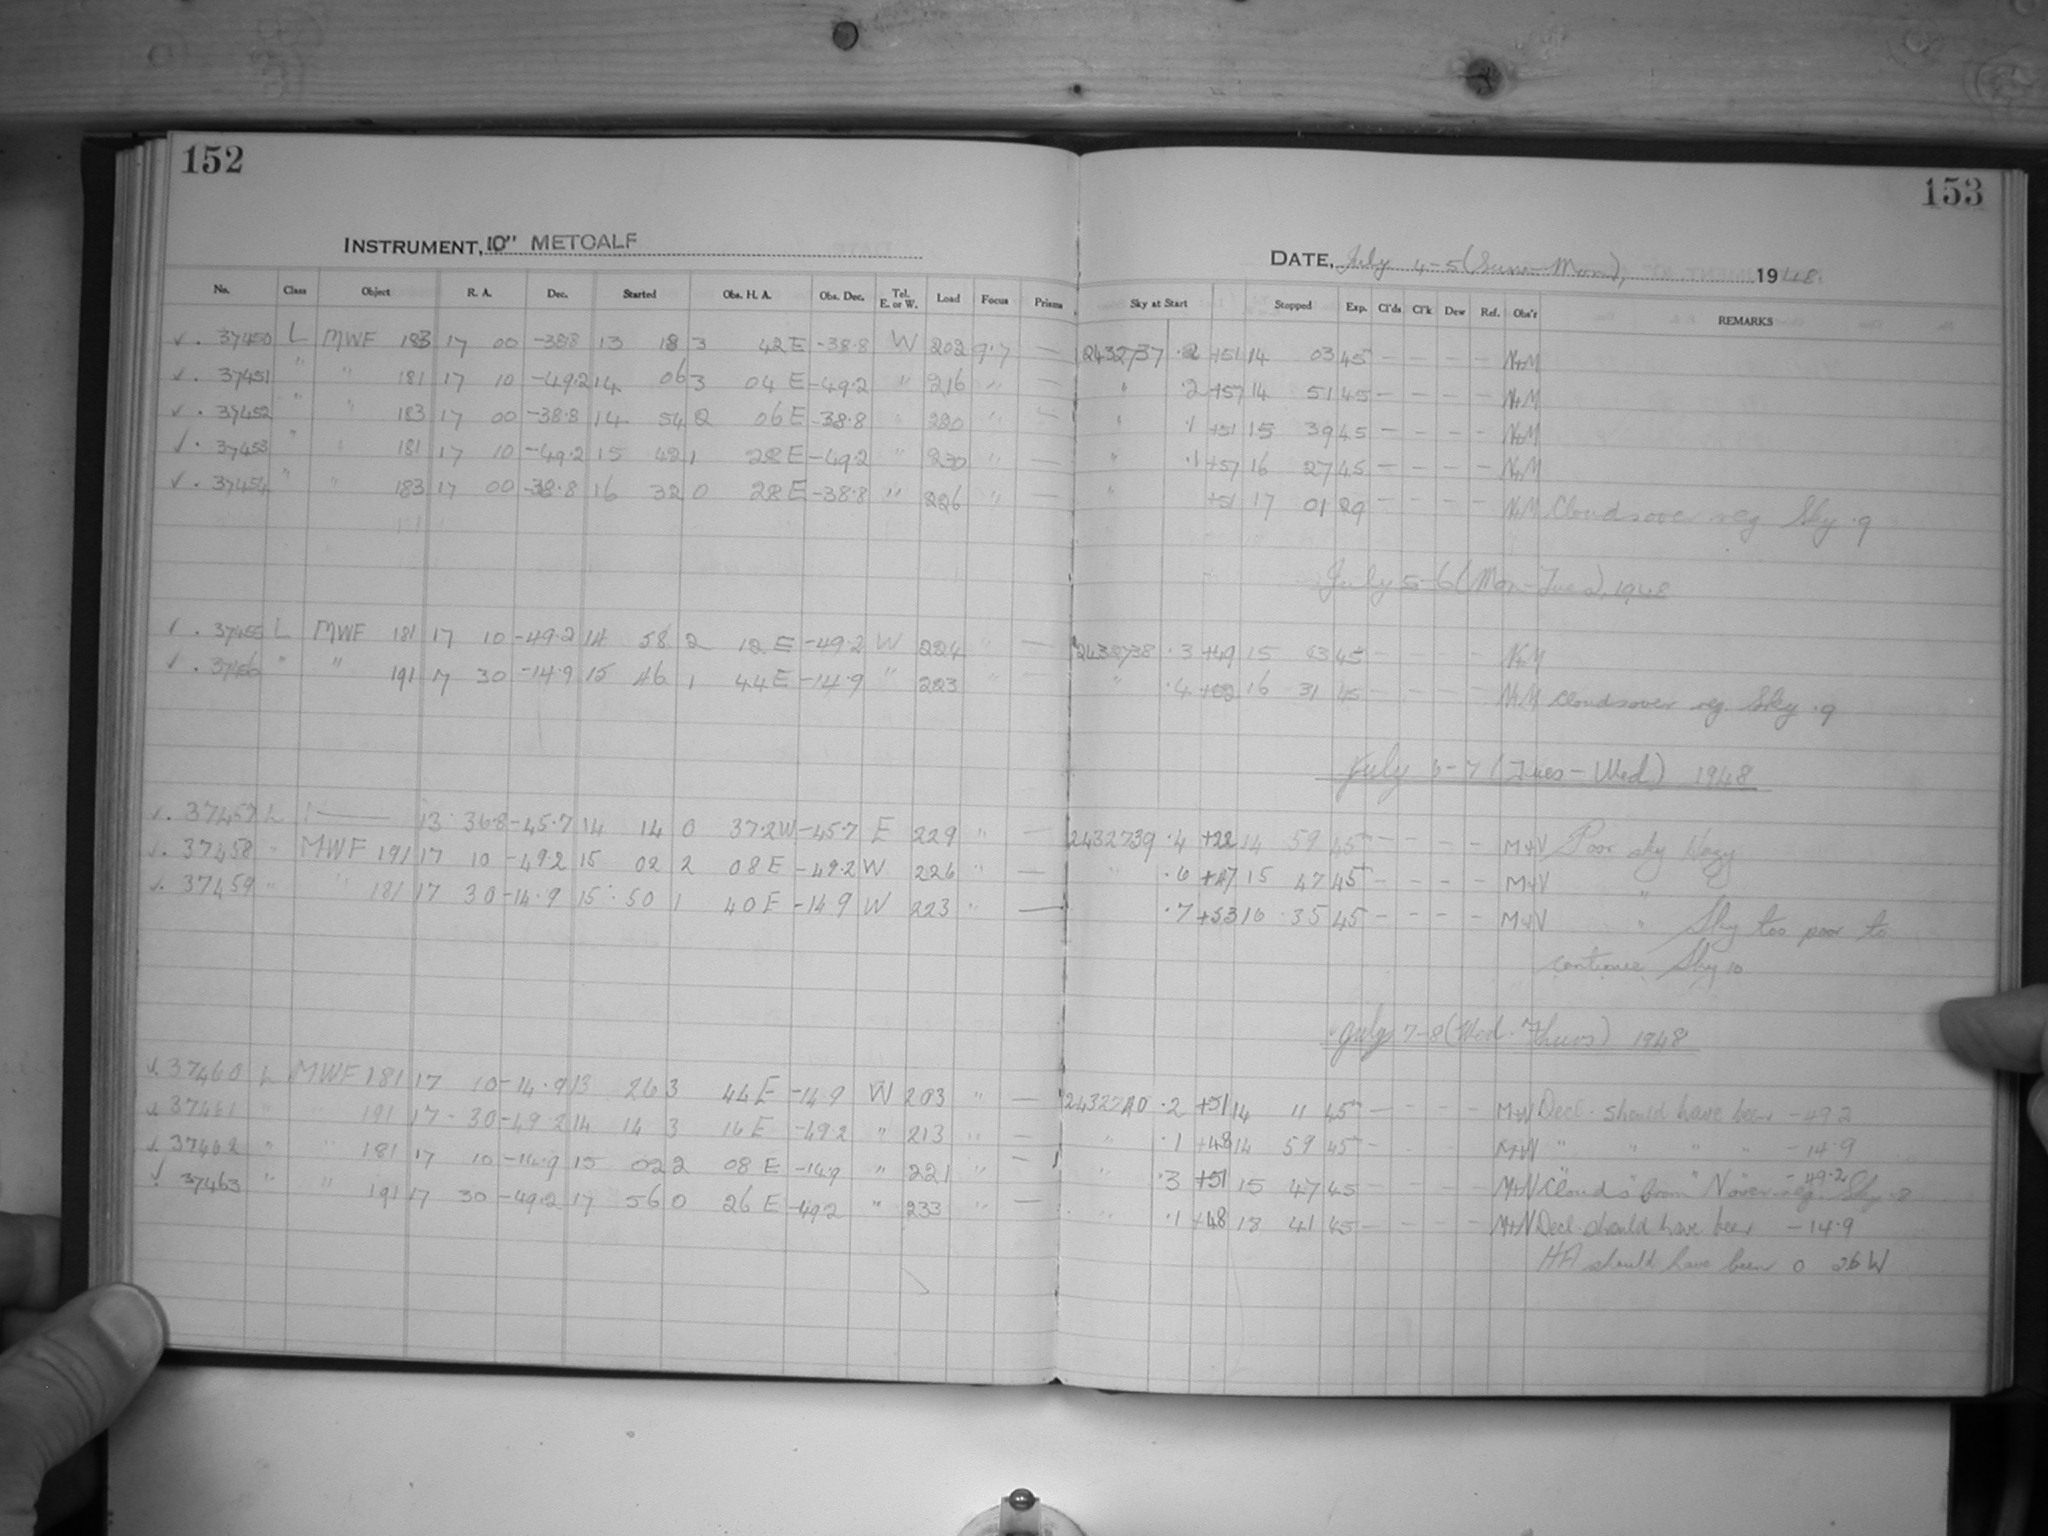 152
153
INSTRUMENT, 10" METCALF
DATE, July 4-5 (Sun-Mon), 1948
No. Class Object R. A. Dec. Started Obs. H. A. Obs. Dec. Tel. E. or W. Load Focus Prism Sky at Start Stopped Exp. Cl'ds Cl'k Dew Ref. Obs'r REMARKS
✓ . 37450 L MWF 183 17 00 -38.8 13 18 3 42 E -38.8 W 202 9.7 — 2432737 .2 +51 14 03 45 — — — — N+M
✓ . 37451 " " 181 17 10 -49.2 14 06 3 04 E -49.2 " 216 " — " .2 +57 14 51 45 — — — — N+M
✓ . 37452 " " 183 17 00 -38.8 14 54 2 06 E -38.8 " 220 " — " .1 +51 15 39 45 — — — — N+M
✓ . 37453 " " 181 17 10 -49.2 15 42 1 28 E -49.2 " 230 " — " .1 +57 16 27 45 — — — — N+M
✓ . 37454 " " 183 17 00 -38.8 16 32 0 28 E -38.8 " 226 " — " +51 17 01 29 — — — — N+M Clouds over reg Sky .9
July 5-6 (Mon-Tues), 1948
✓ . 37455 L MWF 181 17 10 -49.2 14 58 2 12 E -49.2 W 224 " — 2432738 .3 +49 15 43 45 — — — — N+M
✓ . 37456 " " 191 17 30 -14.9 15 46 1 44 E -14.9 " 223 " — " .4 16 31 45 — — — — N+M Clouds over reg. Sky .9
July 6-7 (Tues-Wed) 1948
✓ . 37457 L — 13 36.8 -45.7 14 14 0 37.2 W -45.7 E 229 " — 2432739 .4 +22 14 59 45 — — — — M+N Poor sky Hazy
✓ . 37458 " MWF 191 17 10 -49.2 15 02 2 08 E -49.2 W 226 " — " .6 +47 15 47 45 — — — — M+N "
✓ . 37459 " " 181 17 30 -14.9 15 50 1 40 E -14.9 W 223 " — .7 +53 16 35 45 — — — — M+N " Sky too poor to
continue Sky 10
July 7-8 (Wed-Thurs) 1948
✓ . 37460 L MWF 181 17 10 -14.9 13 26 3 44 E -14.9 W 203 " — 2432740 .2 +51 14 11 45 — — — — M+N Decl. should have been -49.2
✓ . 37461 " " 191 17 30 -49.2 14 14 3 16 E -49.2 " 213 " — " .1 +48 14 59 45 — — — — M+N " " " " -14.9
✓ . 37462 " " 181 17 10 -14.9 15 02 2 08 E -14.9 " 221 " — " .3 +51 15 47 45 — — — — M+N " " " " -49.2 Clouds from N over reg. Sky .8
✓ . 37463 " " 191 17 30 -49.2 17 56 0 26 E -49.2 " 233 " — " .1 +48 18 41 45 — — — — M+N Decl. should have been -14.9
HA should have been 0 26 W